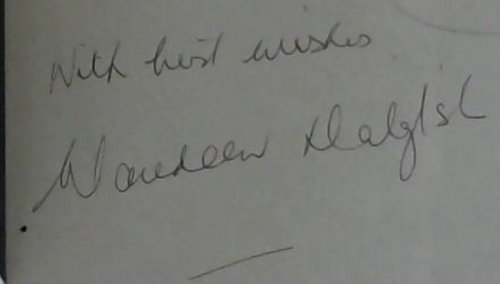 With best wishes
Maureen Dalglish